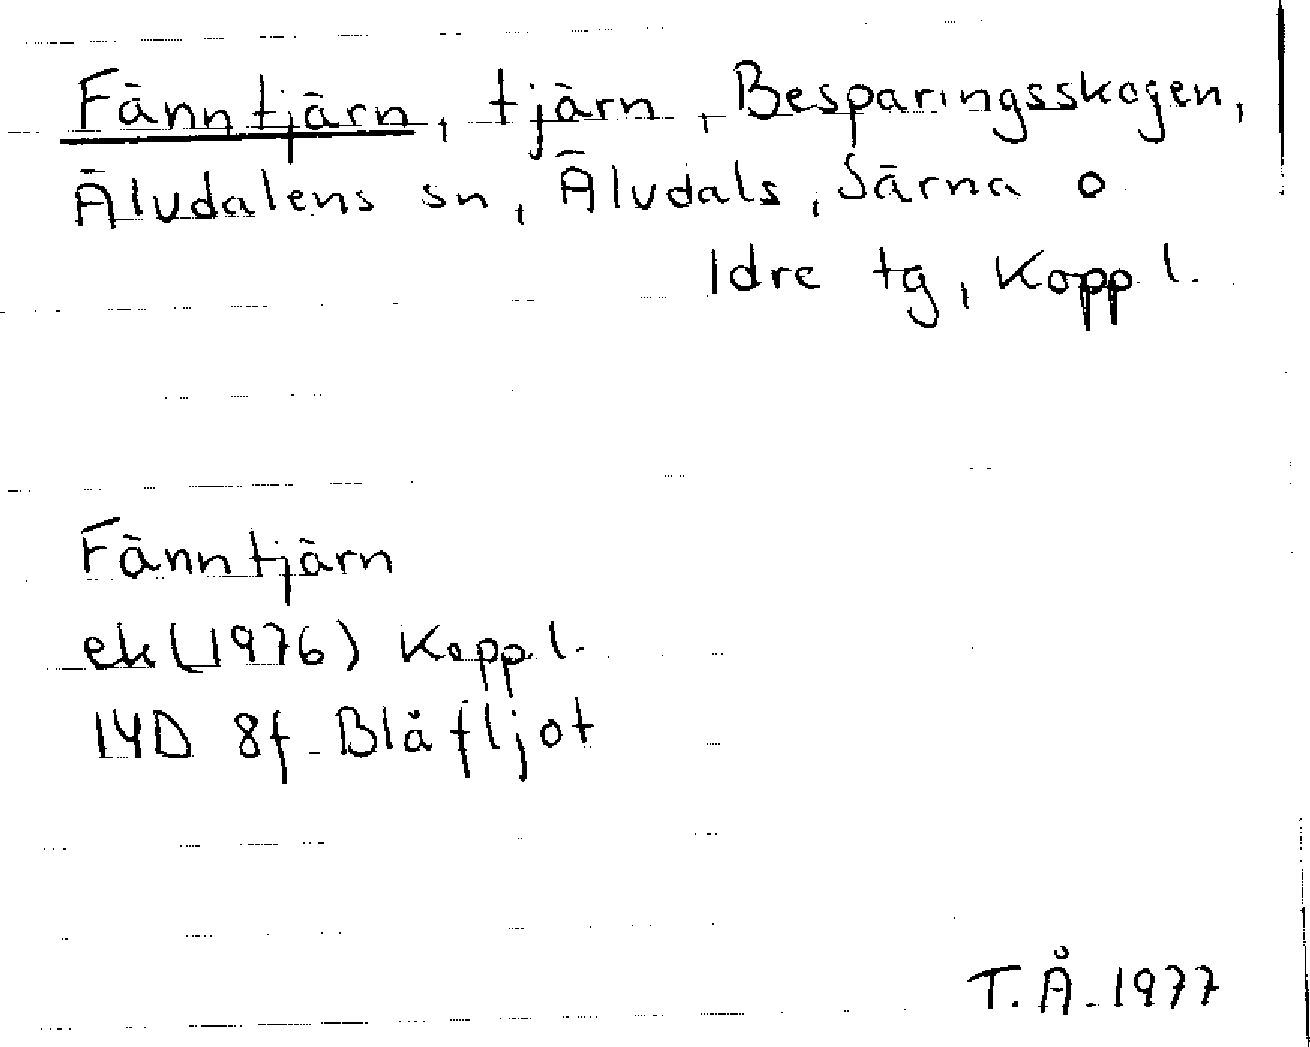 Fänntjärn, tjärn, Besparingsskogen,
Älvdalens sn, Älvdals, Särna o
Idre tg, Kopp l.
Fänntjärn
ek (1976) Kopp l.
14D 8f Blåfljot
T. Å. 1977